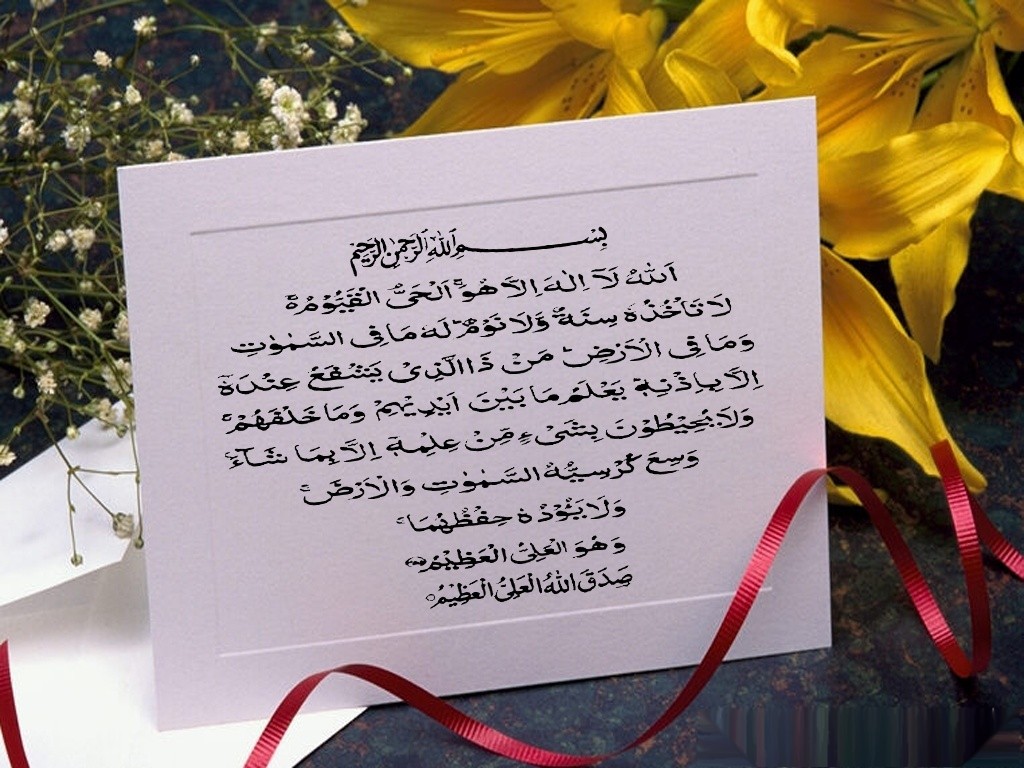 بِسْمِ اللّٰهِ الرَّحْمٰنِ الرَّحِيْمِ
اَللّٰهُ لَآ اِلٰهَ اِلَّا هُوَ ۚ اَلْحَيُّ الْقَيُّوْمُ ۚ
لَا تَاْخُذُهٗ سِنَةٌ وَّلَا نَوْمٌ ؕ لَهٗ مَا فِي السَّمٰوٰتِ
وَمَا فِي الْاَرْضِ ؕ مَنْ ذَا الَّذِيْ يَشْفَعُ عِنْدَهٗٓ
اِلَّا بِاِذْنِهٖ ؕ يَعْلَمُ مَا بَيْنَ اَيْدِيْهِمْ وَمَا خَلْفَهُمْ ۚ
وَلَا يُحِيْطُوْنَ بِشَيْءٍ مِّنْ عِلْمِهٖٓ اِلَّا بِمَا شَآءَ ۚ
وَسِعَ كُرْسِيُّهُ السَّمٰوٰتِ وَالْاَرْضَ ۚ
وَلَا يَـُٔوْدُهٗ حِفْظُهُمَا ۚ
وَهُوَ الْعَلِيُّ الْعَظِيْمُ
صَدَقَ اللّٰهُ الْعَلِيُّ الْعَظِيْمُ